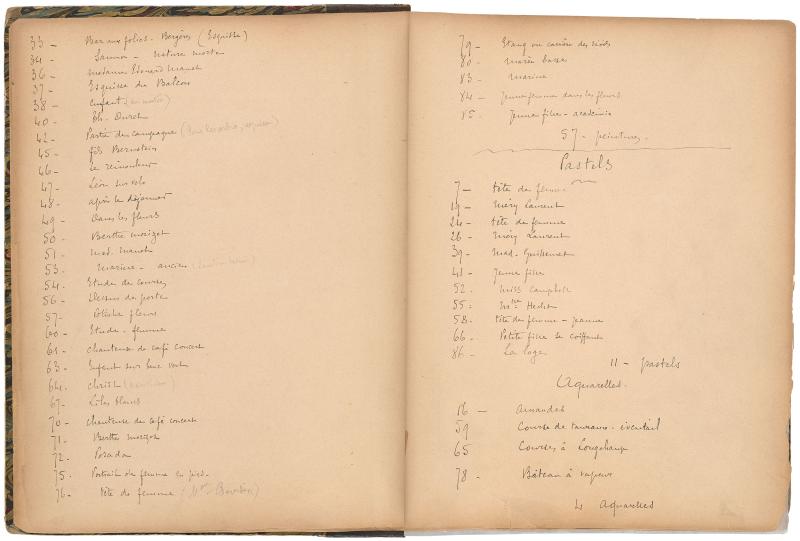 33 - Bar aux folies-Bergère (Esquisse)
34 - Saumon - nature morte
36 - madame Edouard Manet
37 - Esquisse du Balcon
38 - enfant
40 - Th. Duret
42 - Partie de campagne
45 - fils Bernstein
46 - Le rémouleur
47 - Léon sur vélo
48 - après le déjeuner
49 - Dans les fleurs
50 - Berthe morizot
51 - mad. Manet
53 - Marine - ancien
54 - Etude de courses
56 - Dessus de porte
57 - Potiche fleurs
60 - Etude - femme
61 - chanteuse de café concert
63 - Enfant sur banc vert
64 - christ
67 - Lilas blancs
70 - chanteuse de café concert
71 - Berthe morizot
72 - Posada
75 - Portrait de femme en pied
76 - tête de femme
79 - Etang ou
80 - marée basse
83 - marine
84 - Jeune femme dans les fleurs
85 - Jeune fille - academie
57 - peintures.
Pastels
7 - tête de femme
19 - méry Laurent
24 - tête de femme
26 - méry Laurent
39 - mad. Guillemet
41 - jeune fille
52. miss Campbell
55. Hecht
58. tête de femme - jeanne
66. Petite fille se coiffant
86 - La loge
11 - pastels
Aquarelles.
16 - Amandes
59 Course de taureaux. éventail
65 Courses à Longchamp
78 - Bâteau à vapeur
4 aquarelles